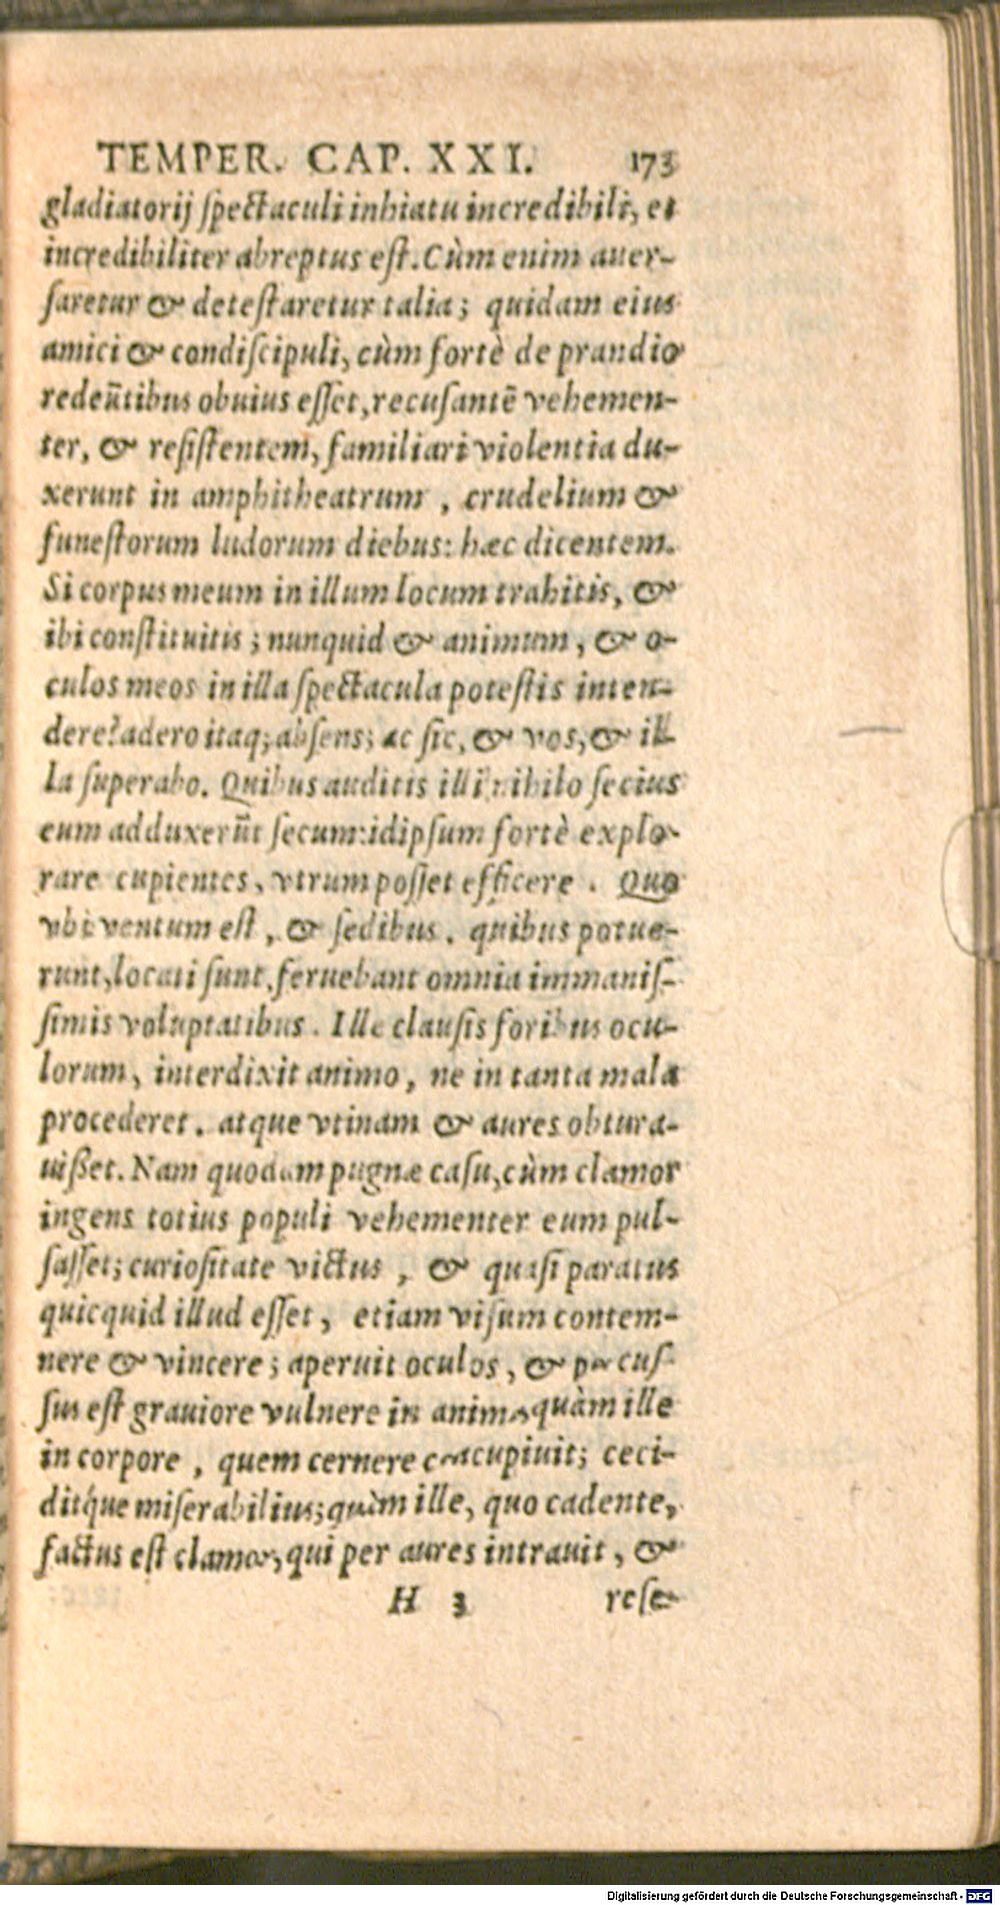 TEMPER. CAP. XXI. 173
gladiatorij ſpectaculi inhiatu incredibili, et
incredibiliter abreptus eſt. Cùm enim auer-
ſaretur & deteſtaretur talia; quidam eius
amici & condiſcipuli, cùm fortè de prandio
redeūtibus obuius eſſet, recuſantē vehemen-
ter, & reſiſtentem, familiari violentia du-
xerunt in amphitheatrum, crudelium &
funeſtorum ludorum diebus: hæc dicentem.
Si corpus meum in illum locum trahitis, &
ibi conſtituitis; nunquid & animum, & o-
culos meos in illa ſpectacula poteſtis inten-
dere? adero itaq; abſens; ac ſic, & vos, & il-
la ſuperabo. Quibus auditis illi nihilo ſecius
eum adduxerūt ſecum: idipſum fortè explo-
rare cupientes, vtrum poſſet efficere. Quo
vbi ventum eſt, & ſedibus, quibus potue-
runt, locati ſunt, feruebant omnia immaniſ-
ſimis voluptatibus. Ille clauſis foribus ocu-
lorum, interdixit animo, ne in tanta mala
procederet. atque vtinam & aures obtura-
uißet. Nam quodam pugnæ caſu, cùm clamor
ingens totius populi vehementer eum pul-
ſaſſet; curioſitate victus, & quaſi paratus
quicquid illud eſſet, etiam viſum contem-
nere & vincere; aperuit oculos, & percuſ-
ſus eſt grauiore vulnere in anima, quàm ille
in corpore, quem cernere concupiuit; ceci-
ditq́ue miſerabilius; quàm ille, quo cadente,
factus eſt clamor, qui per aures intrauit, &
H 3 reſe-
Digitalisierung gefördert durch die Deutsche Forschungsgemeinschaft - DFG